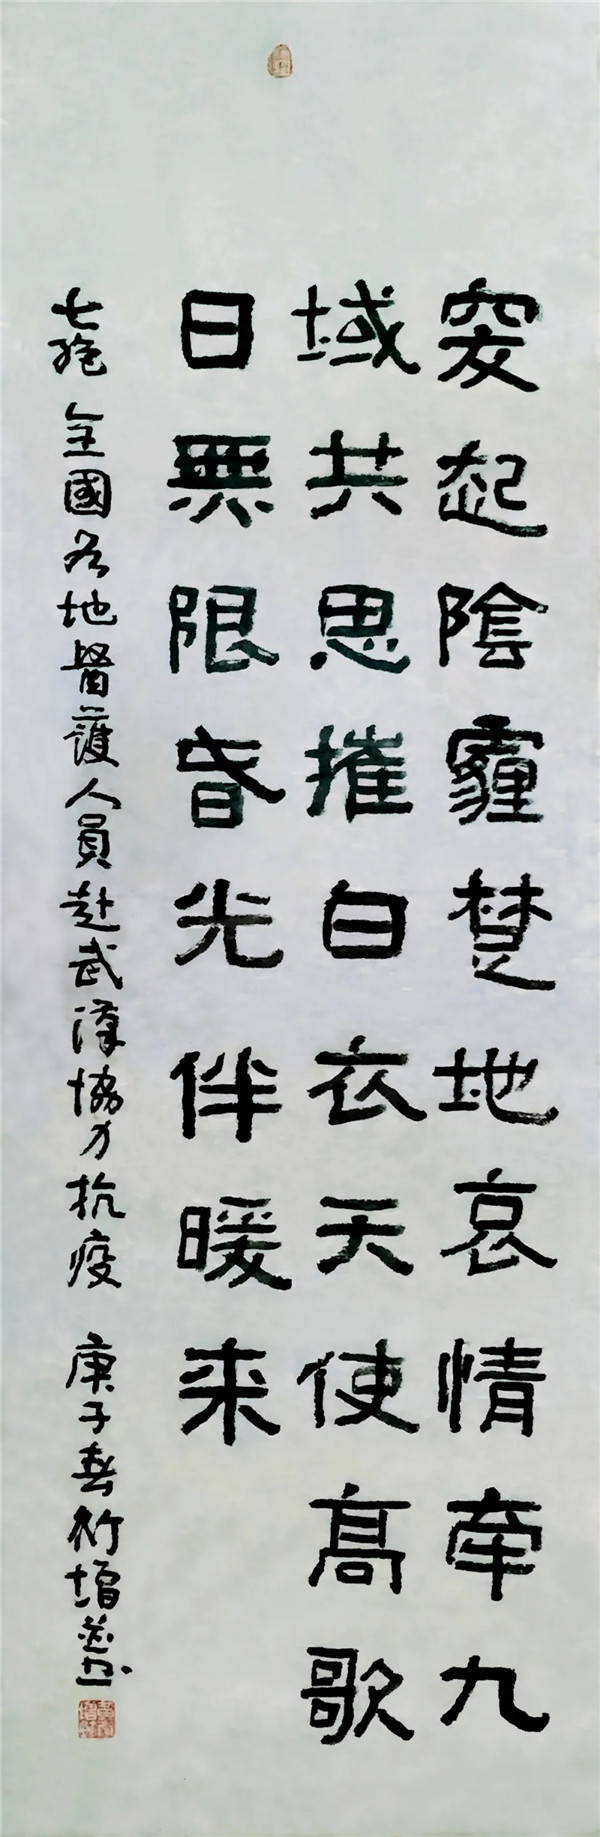 突起陰霾楚地哀情牵九
域共思摧白衣天使髙歌
日無限春光伴暖来
七絶 全國各地醫護人員赴武漢協力抗疫 庚子春竹增并书